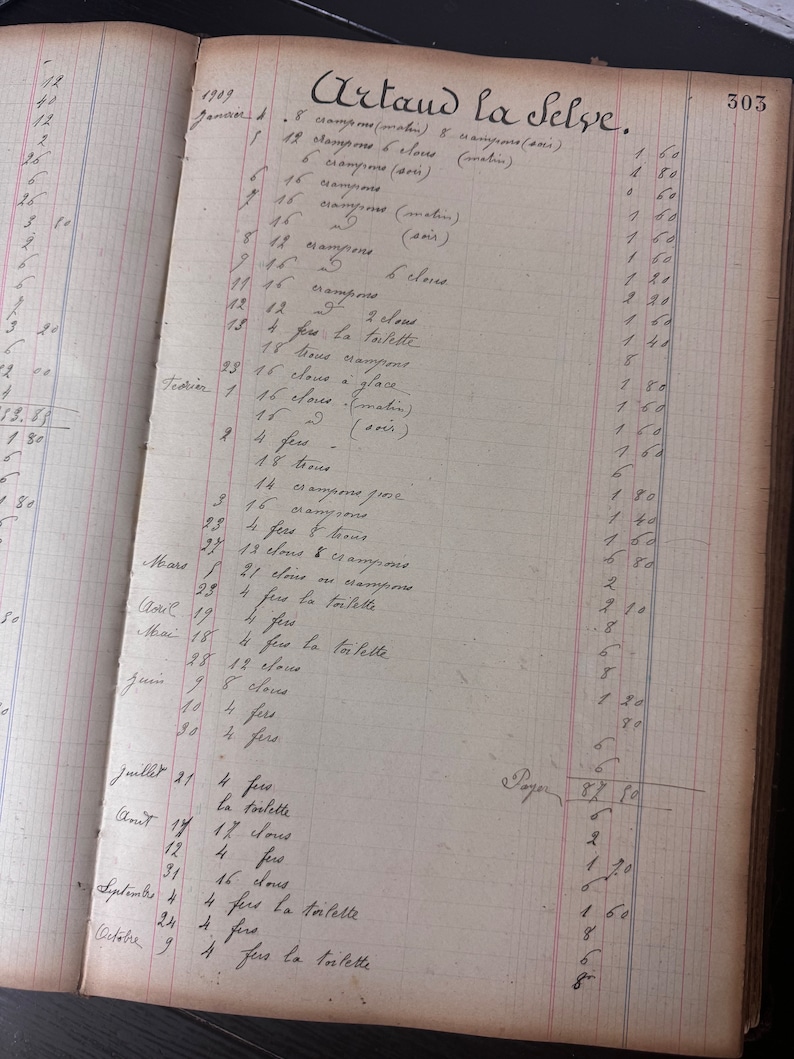 12
40
12
2
26
6
26
3 80
2
6
6
7
3 20
6
00
4
1 80
6
6
1 80
6
50
303
Artaud la Selve.
1909
Janvier 4 8 crampons (matin) 8 crampons (soir) 1 60
5 12 crampons 6 clous (matin) 1 80
6 crampons (soir) " 60
6 16 crampons 1 60
7 16 crampons (matin) 1 60
16 id (soir) 1 60
8 12 crampons 1 20
9 16 id 6 clous 2 20
11 16 crampons 1 60
12 12 id 2 clous 1 40
13 4 fers la toilette 8
18 trous crampons 1 80
23 16 clous à glace 1 60
Fevrier 1 16 clous (matin) 1 60
16 id (soir) 1 60
2 4 fers 6
18 trous 1 80
14 crampons posé 1 40
3 16 crampons 1 60
23 4 fers 8 trous 6 80
27 12 clous 8 crampons 2
Mars 5 21 clous ou crampons 2 10
23 4 fers la toilette 8
Avril 19 4 fers 6
Mai 18 4 fers la toilette 8
28 12 clous 1 20
Juin 9 8 clous 80
10 4 fers 6
30 4 fers 6
Payer 87 50
Juillet 21 4 fers 6
la toilette 2
Août 11 17 clous 1 70
12 4 fers 6
31 16 clous 1 60
Septembre 4 4 fers la toilette 8
24 4 fers 6
Octobre 9 4 fers la toilette 8